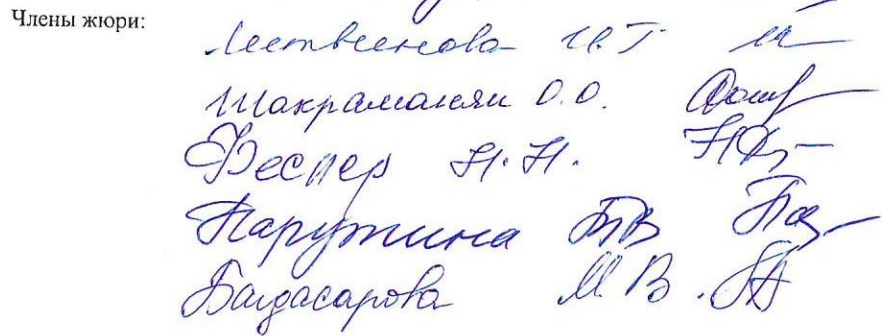 Члены жюри:
Литвинова И.Г.
Шакраманян О.О.
Феспер Н.Н.
Паружина Т.В
Багдасарова М.В.